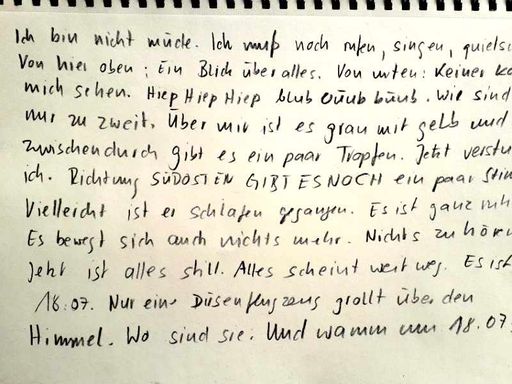 Ich bin nicht müde. Ich muß noch rufen, singen, quiets
Von hier oben: Ein Blick über alles. Von unten: Keiner ka
mich sehen. Hiep Hiep Hiep blub buub. Wir sind
nur zu zweit. Über mir ist es grau mit gelb und
zwischendurch gibt es ein paar Tropfen. Jetzt verstu
ich. Richtung SÜDOSTEN GIBT ES NOCH ein paar Stim
Vielleicht ist er schlafen gegangen. Es ist ganz ruh
Es bewegt sich auch nichts mehr. Nichts zu hören
Jetzt ist alles still. Alles scheint weit weg. Es ist
18:07. Nur eine Düsenflugzeug grollt über den
Himmel. Wo sind sie. Und warum um 18.07.